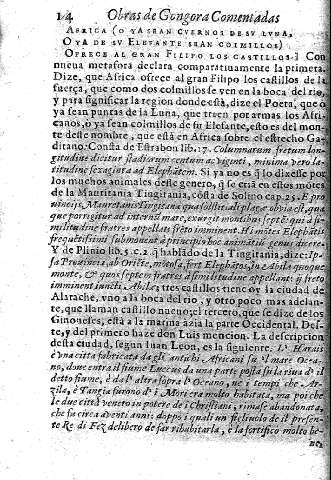 14 Obras de Gongora Comentadas
AFRICA (O YA SEAN CVERNOS DE SV LVNA,
O YA DE SV ELEFANTE SEAN COLMILLOS)
OFRECE AL GRAN FILIPO LOS CASTILLOS.] Con
nueua metafora declara comparatiuamente la primera.
Dize, que Africa ofrece al gran Filipo los castillos de la
fuerça, que como dos colmillos se ven en la boca del rio,
y para significar la region donde està, dize el Poeta, que o
ya sean puntas de la Luna, que traen por armas los Afri
canos, ò ya sean colmillos de su Elefante, esto es del mon-
te deste nombre, que està en Africa sobre el estrecho Ga-
ditano. Consta de Estrabon lib. 17. Columnarum fretum lon-
gitudine dicitur stadiorum centum ac viginti, minima vero la-
titudine sexaginta ad Elephãtem. Si ya no es q̃ lo dixesse por
los muchos animales deste genero, q̃ se criã en estos mõtes
de la Mauritania Tingitania, cõsta de Solino cap. 25. E pro
uincijs, Mauretanis Tingitana quæ solis
que porrigitur ad internũ mare, exurgit montibus septẽ: qui à si-
militudine fratres appellati freto imminent. Hi mõtes Elephãtis
frequẽtissimi submonent à principio hoc animãtiũ genus dicere.
Y de Plinio lib. 5. c. 2. q̃ hablãdo de la Tingitania, dize: Ipsa
Prouincia, ab Oriẽte, mõtosa, fert Elephãtos, in Abila quoque
monte, & quos septem fratres à similitudine appellant: ij freto
imminent iuncti Abilæ; tres castillos tiene oy la ciudad de
Alarache, vno a la boca del rio, y otro poco mas adelan-
te, que llaman castillo nueuo; el tercero, que se dize de los
Ginoueses, està a la marina azia la parte Occidental. Des-
te, y del primero hace don Luis mencion. La descripcion
desta ciudad, segun Iuan Leon, es la siguiente. L' Harais
è una città fabricata da gli antichi Africani su'l mare Ocea-
no, doue entra il fiume Luccus da una parte posta su la riua d' il
detto fiume, è da l' altra sopra l' Oceano, ne i tempi che Ar-
zila, è Tangia furono d' i Mori era molto habitata, ma poi che
le due città vennero in potere de i Christiani, rimase abandonata,
che fu circa a venti anni: doppo i quali un figliuolo de il presen-
te Re di Fez delibero de far rihabitarla, è la fortificò molto be-
ne;